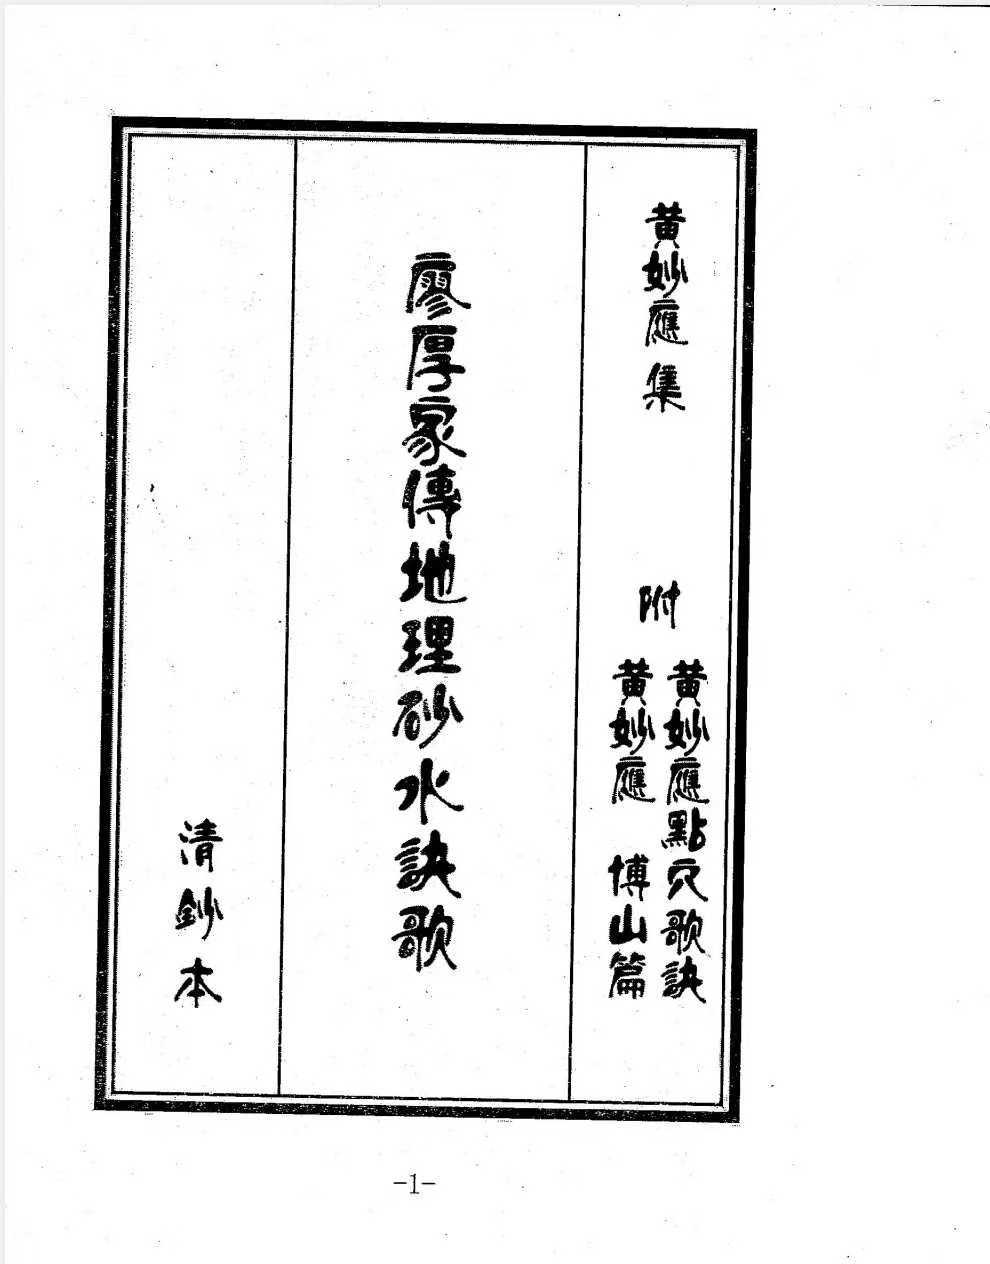 黃妙應集
附
黃妙應點穴歌訣
黃妙應 博山篇
廖厚家傳地理砂水訣歌
清鈔本
-1-